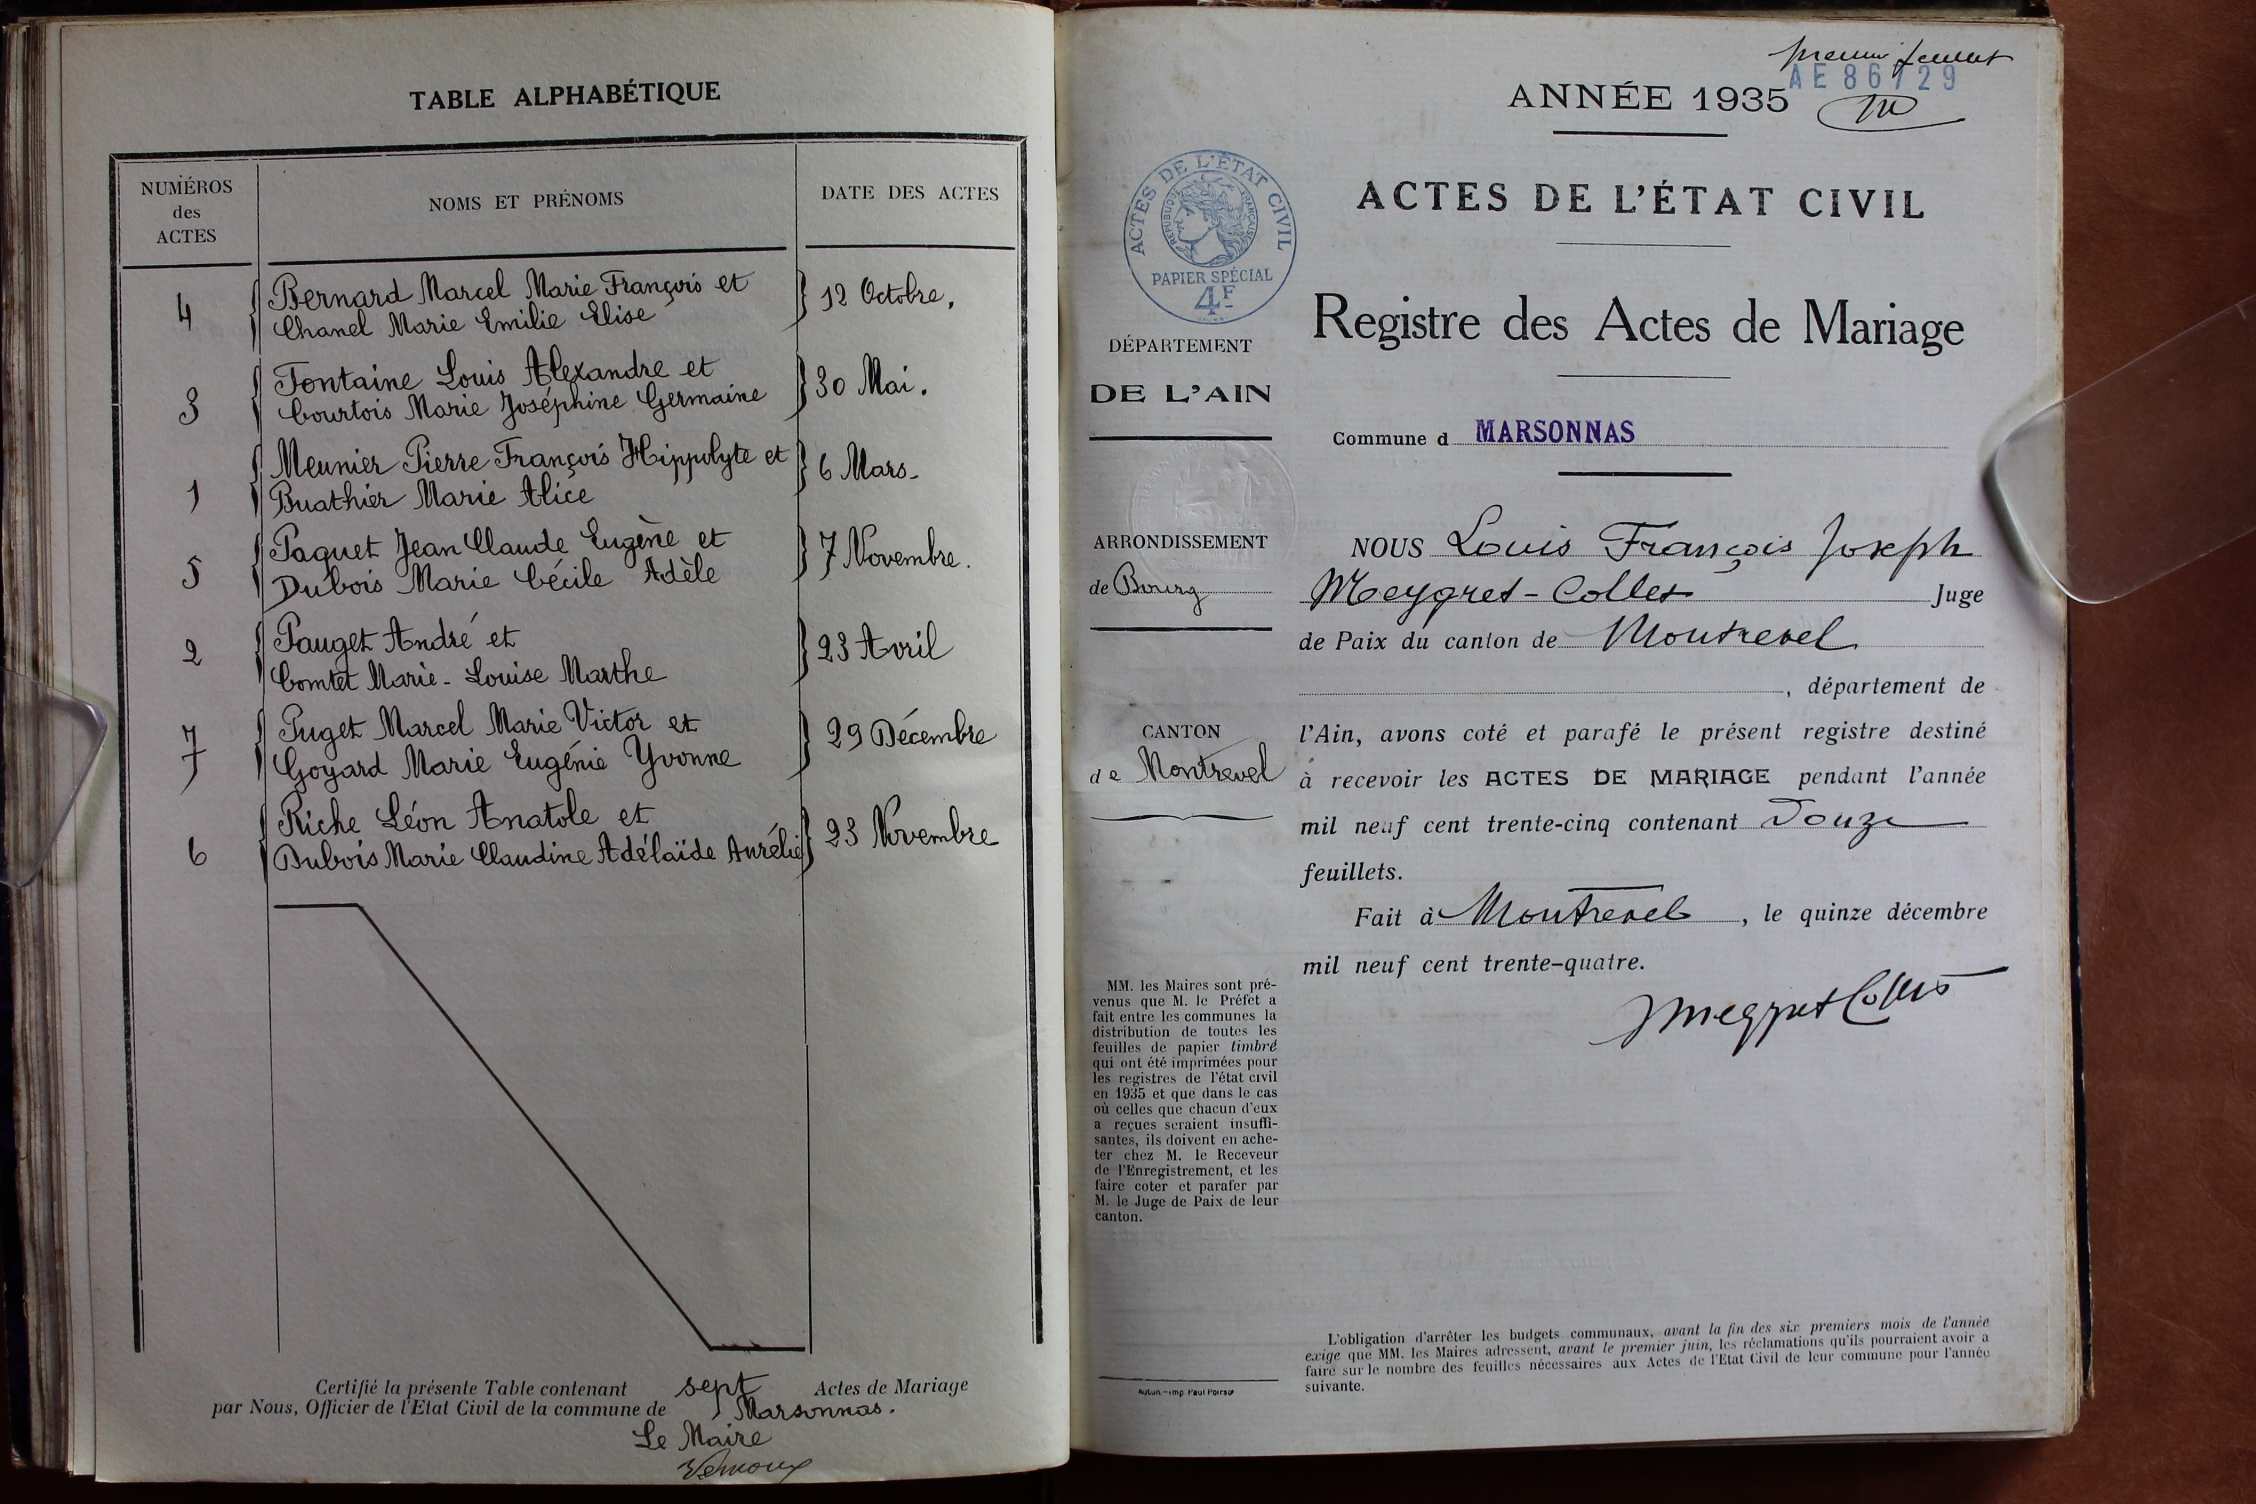 TABLE ALPHABÉTIQUE
NUMÉROS
des
ACTES
NOMS ET PRÉNOMS
DATE DES ACTES
4
Bernard Marcel Marie François et
Chanel Marie Emilie Elise
12 Octobre.
3
Fontaine Louis Alexandre et
Courtois Marie Joséphine Germaine
30 Mai.
1
Meunier Pierre François Hippolyte et
Buathier Marie Alice
6 Mars-
5
Paquet Jean Claude Eugène et
Dubois Marie Cécile Adèle
7 Novembre.
2
Pauget André et
Comtet Marie-Louise Marthe
23 Avril
7
Puget Marcel Marie Victor et
Goyard Marie Eugénie Yvonne
29 Décembre
6
Riche Léon Anatole et
Dubois Marie Claudine Adélaïde Aurélie
23 Novembre
Certifié la présente Table contenant sept Actes de Mariage
par Nous, Officier de l'Etat Civil de la commune de Marsonnas.
Le Maire
premier feuillet
AE 86129
ANNÉE 1935
ACTES DE L'ÉTAT CIVIL
RÉPUBLIQUE FRANÇAISE
PAPIER SPÉCIAL
4F
ACTES DE L'ÉTAT CIVIL
Registre des Actes de Mariage
DÉPARTEMENT
DE L'AIN
Commune d MARSONNAS
ARRONDISSEMENT
de Bourg
CANTON
de Montrevel
NOUS Louis François Joseph
Meygret-Collet Juge
de Paix du canton de Montrevel
, département de
l'Ain, avons coté et parafé le présent registre destiné
à recevoir les ACTES DE MARIAGE pendant l'année
mil neuf cent trente-cinq contenant Douze
feuillets.
Fait à Montrevel, le quinze décembre
mil neuf cent trente-quatre.
Meygret Collet
MM. les Maires sont pré-
venus que M. le Préfet a
fait entre les communes la
distribution de toutes les
feuilles de papier timbré
qui ont été imprimées pour
les registres de l'état civil
en 1935 et que dans le cas
où celles que chacun d'eux
a reçues seraient insuffi-
santes, ils doivent en ache-
ter chez M. le Receveur
de l'Enregistrement, et les
faire coter et parafer par
M. le Juge de Paix de leur
canton.
Autun.-imp Paul Poirson
L'obligation d'arrêter les budgets communaux, avant la fin des six premiers mois de l'année
exige que MM. les Maires adressent, avant le premier juin, les réclamations qu'ils pourraient avoir a
faire sur le nombre des feuilles nécessaires aux Actes de l'Etat Civil de leur commune pour l'année
suivante.